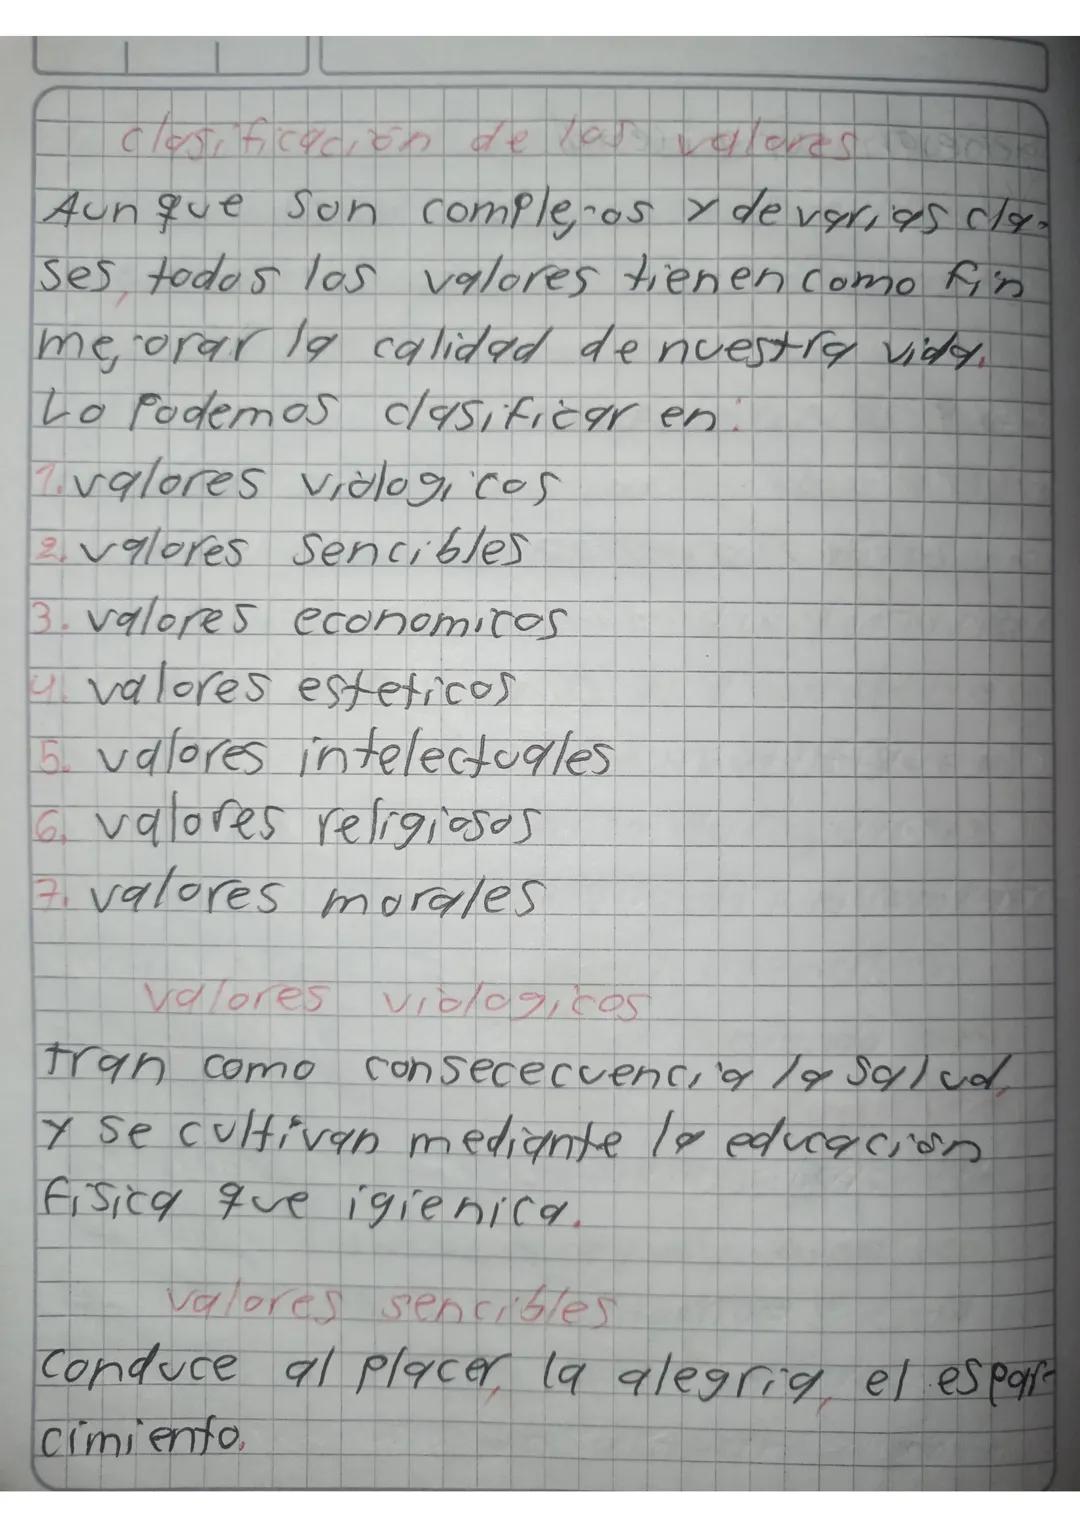 clasificación de las valores
Aunque son complejos y de varias cla-
ses, todos los valores tienen como fin
mejorar la calidad de nuestra vida.
Lo Podemos clasificar en:
1. valores viologicos
2. valores sencibles
3. valores economicos
4. valores esteticos
5. valores intelectuales
6. valores religiosos
7. valores morales
valores viologicos
tran como consececuencia la salud,
y se cultivan mediante la educación
fisica que igienica.
valores sencibles
conduce al placer, la alegria, el espar-
cimiento.